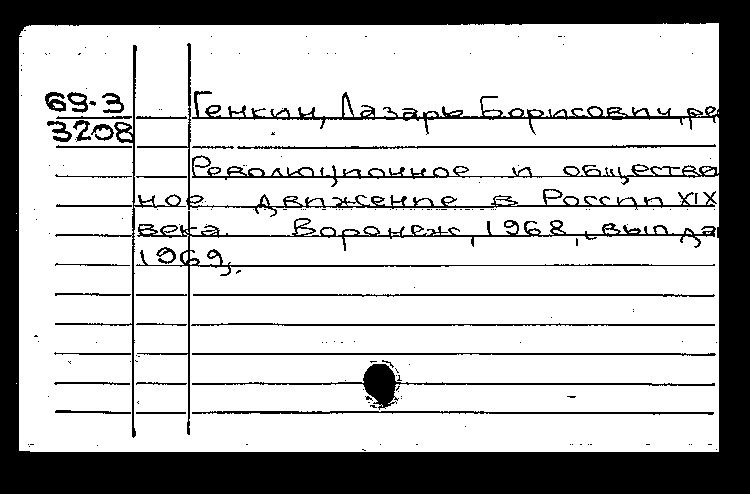 69-3
3208
Генкин, Лазарь Борисович, ре
Революционное и обществе
ное движение в России XIX
века. Воронеж, 1968, вып. да
1969;.